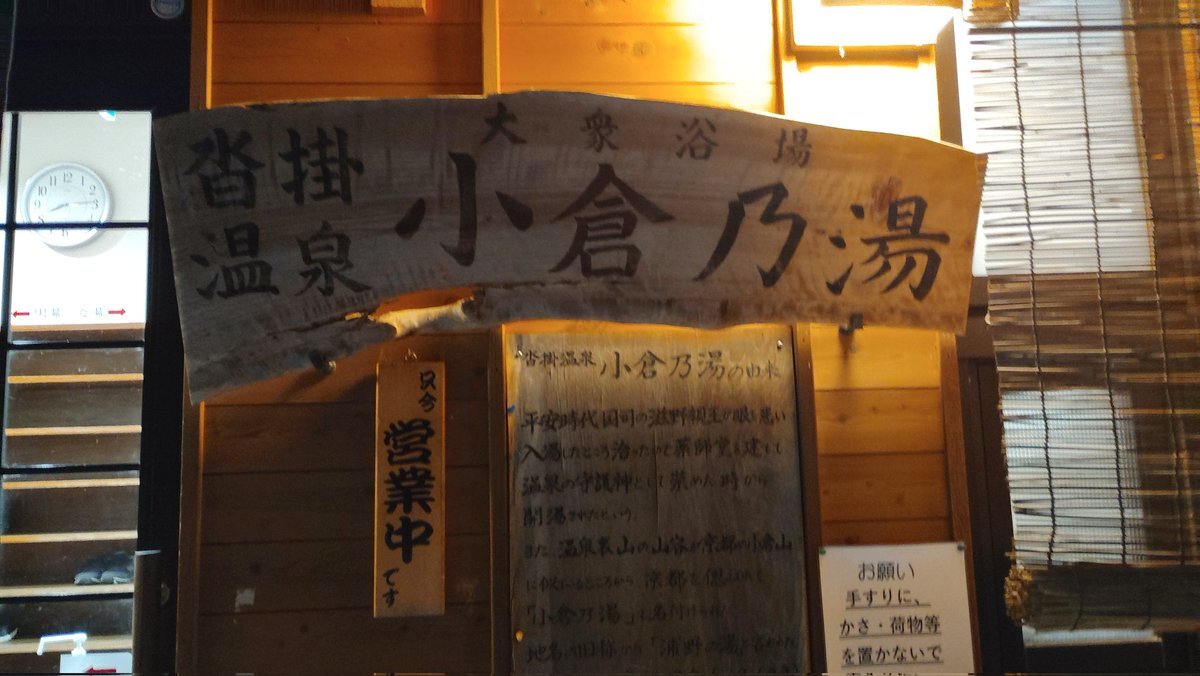 大衆浴場
沓掛
温泉
小倉乃湯
只今
営業中
です
沓掛温泉 小倉乃湯の由来
平安時代国司の滋野親王が眼を患い
入湯したところ治ったので薬師堂を建て
温泉の守護神として崇めた時から
開湯されたという。
また、温泉裏山の山容が京都の小倉山
に似ているところから、京都を偲ばれて
「小倉乃湯」と名付けられた
お願い
手すりに、
かさ・荷物等
を置かないで
12
11
1
10
2
9
3